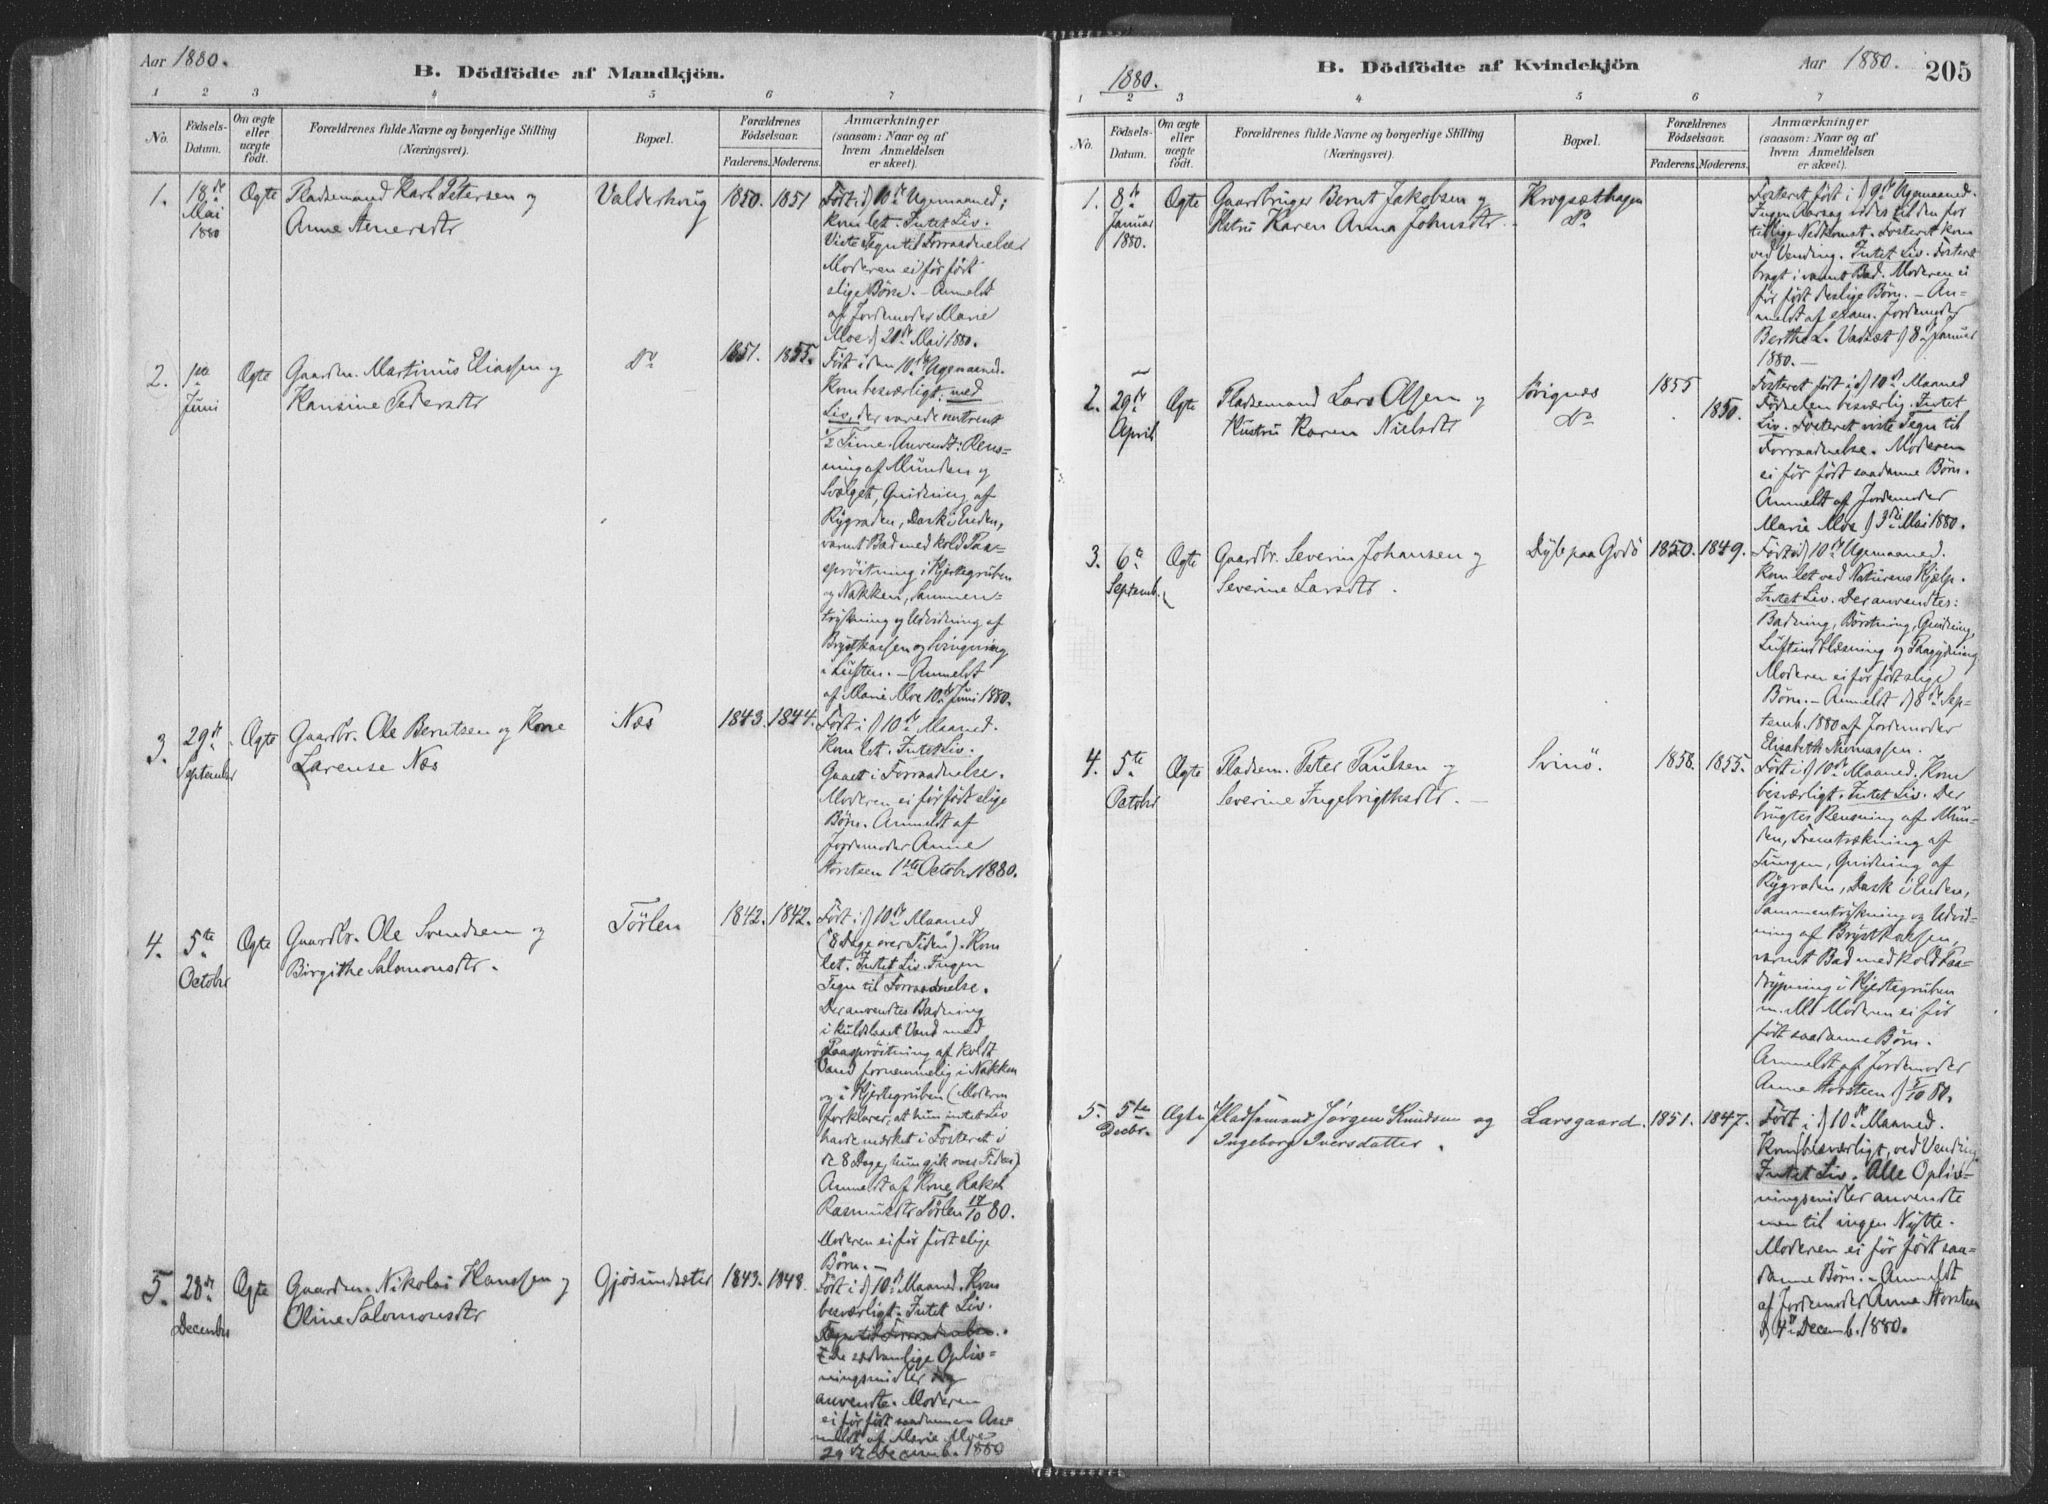 Aar 1880.
B. Dödfödte af Mandkjön.
1 2 3 4 5 6 7
No.
Födsels-
Datum.
Om ægte
eller
uægte
födt.
Forældrenes fulde Navne og borgerlige Stilling
(Næringsvei).
Bopæl.
Forældrenes
Födselsaar.
Faderens. Moderens.
Anmærkninger
(saasom: Naar og af
hvem Anmeldelsen
er skeet).
1. 18de Mai 1880 Ægte Pladsemand Karl Petersen og
Anne
Valderhoug 1850. 1851
Født i d 10de Ugemaaned;
kom let. Intet Liv.
Viste Tegn til Forraadnelse
Moderen ei før født
slige Børn. – Anmeldt
af Jordemoder Marie
Moe d 20de Mai 1880.
2. 1ste Juni Ægte Gaardm. Martinus Eliassen og
Hansine Pedersdtr
Do 1851. 1855.
Født i den 10de Ugemaaned.
Kom besværligt, med
Liv, der varede omtrent
1/2 Time. Anvendt: Rens-
ning af Munden og
Svælget, Gnidning af
Rygraden, Dask i Enden,
varmt Bad med kold Paa-
sprøitning i Hjertegruben
og Nakken, Sammen-
trykning og Udvidning af
Brystkassen og Svingning
i Luften. – Anmeldt
af Marie Moe 10de Juni 1880.
3. 29de September Ægte Gaardbr. Ole Berntsen og Kone
Larense Næs
Næs 1843. 1844.
Født i d 10de Maaned.
Kom let. Intet Liv.
Gaaet i Forraadnelse.
Moderen ei før født slige
Børn. Anmeldt af
Jordemoder Anne
Horsteen 1ste Octobr 1880.
4. 5te Octobr Ægte Gaardbr. Ole Svendsen og
Birgithe Salomonsdtr.
Törlen 1842. 1842.
Født i d 10de Maaned
("8 Dage over Tiden"). Kom
let. Intet Liv. Ingen
Tegn til Forraadnelse.
Der anvendtes Badning
i kuldslaaet Vand med
Paasprøitning af koldt
Vand fornemmelig i Nakken
og i Hjertegruben (Moderen
forklarer, at hun intet Liv
havde mærket i Fosteret i
de 8 Dage, hun gik over Tiden).
Anmeldt af Kone Rakel
Rasmusdtr Törlen 17/10 80.
Moderen ei før født slige
Børn. –
5. 28de December Ægte Gaardm. Nikolai Hanssen og
Oline Salomonsdtr
Gjösundsæter 1843. 1848.
Født i d 10de Maaned. Kom
besværligt. Intet Liv.
Tegn til Forraadnelse.
De sædvanlige Opliv-
ningsmidler
anvendte. Moderen
ei før født saadanne. An-
meldt af Marie Moe
29de Decemb. 1880
1880.
B. Dödfödte af Kvindekjön
Aar 1880.
205
1 2 3 4 5 6 7
No.
Födsels-
Datum.
Om ægte
eller
uægte
födt.
Forældrenes fulde Navne og borgerlige Stilling
(Næringsvei).
Bopæl.
Forældrenes
Födselsaar.
Faderens. Moderens.
Anmærkninger
(saasom: Naar og af
hvem Anmeldelsen
er skeet).
1. 8de Januar 1880. Ægte Gaardbruger Bernt Jakobsen og
Hstru Karen Anna Johnsdtr.
Krogsæthagen
Do
Fosteret født i d 9de Ugemaaned.
Ingen Aarsag vides til den for
tidlige Nedkomst. Fosteret kom
ved Vending. Intet Liv. Fosteret
bragt i varmt Bad. Moderen ei
før født deslige Børn. – An-
meldt af exam. Jordemoder
Berthe L. Vadsæt d 8de Januar
1880. –
2. 29de April Ægte Pladsemand Lars Olsen og
Hustru Karen Nielsdtr
Sörignæs
Do
1855
1850.
Fosteret født i d 10de Maaned
Fødselen besværlig. Intet
Liv. Fosteret viste Tegn til
Forraadnelse. Moderen
ei før født saadanne Børn.
Anmeldt af Jordemoder
Marie Moe d 3die Mai 1880.
3. 6te Septemb. Ægte Gaardbr. Severin Johansen og
Severine Larsdtr.
Dyb paa Godö 1850. 1849.
Født i d 10de Ugemaaned.
Kom let ved Naturens Hjælp.
Intet Liv. Der anvendtes:
Badning, Börstning, Gnidning,
Luftindblæsning og Paagydning
Moderen ei før født slige
Børn. – Anmeldt d 8de Sep-
temb. 1880 af Jordemoder
Elisabeth Thomassen.
4. 5te Octobr Ægte Pladsem. Peter Paulsen og
Severine Ingebrigtsdtr. –
Svinö. 1858. 1855.
Født i d 10de Maaned. Kom
besværligt. Intet Liv. Der
brugtes Rensning af Mun-
den, Fremtrækning af
Tungen, Gnidning af
Rygraden, Dask i Enden,
Sammentrykning og Udvid-
ning af Brystkassen,
varmt Bad med kold Paa-
drypning i Hjertegruben
m. M. Moderen ei før
født saadanne Børn.
Anmeldt af Jordemoder
Anne Horsteen d 7/10 80.
5. 5te Decbr. Ægte Pladsemand Jörgen Knudsen og
Ingeborg Iversdatter.
Larsgaard. 1851. 1847.
Født i d 10de Maaned.
Kom besværligt, ved Vending.
Intet Liv. Alle Opliv-
ningsmidler anvendte
men til ingen Nytte.
Moderen ei før født saa-
danne Børn. – Anmeldt
af Jordemoder Anne Horsteen
d 4de Decemb. 1880.